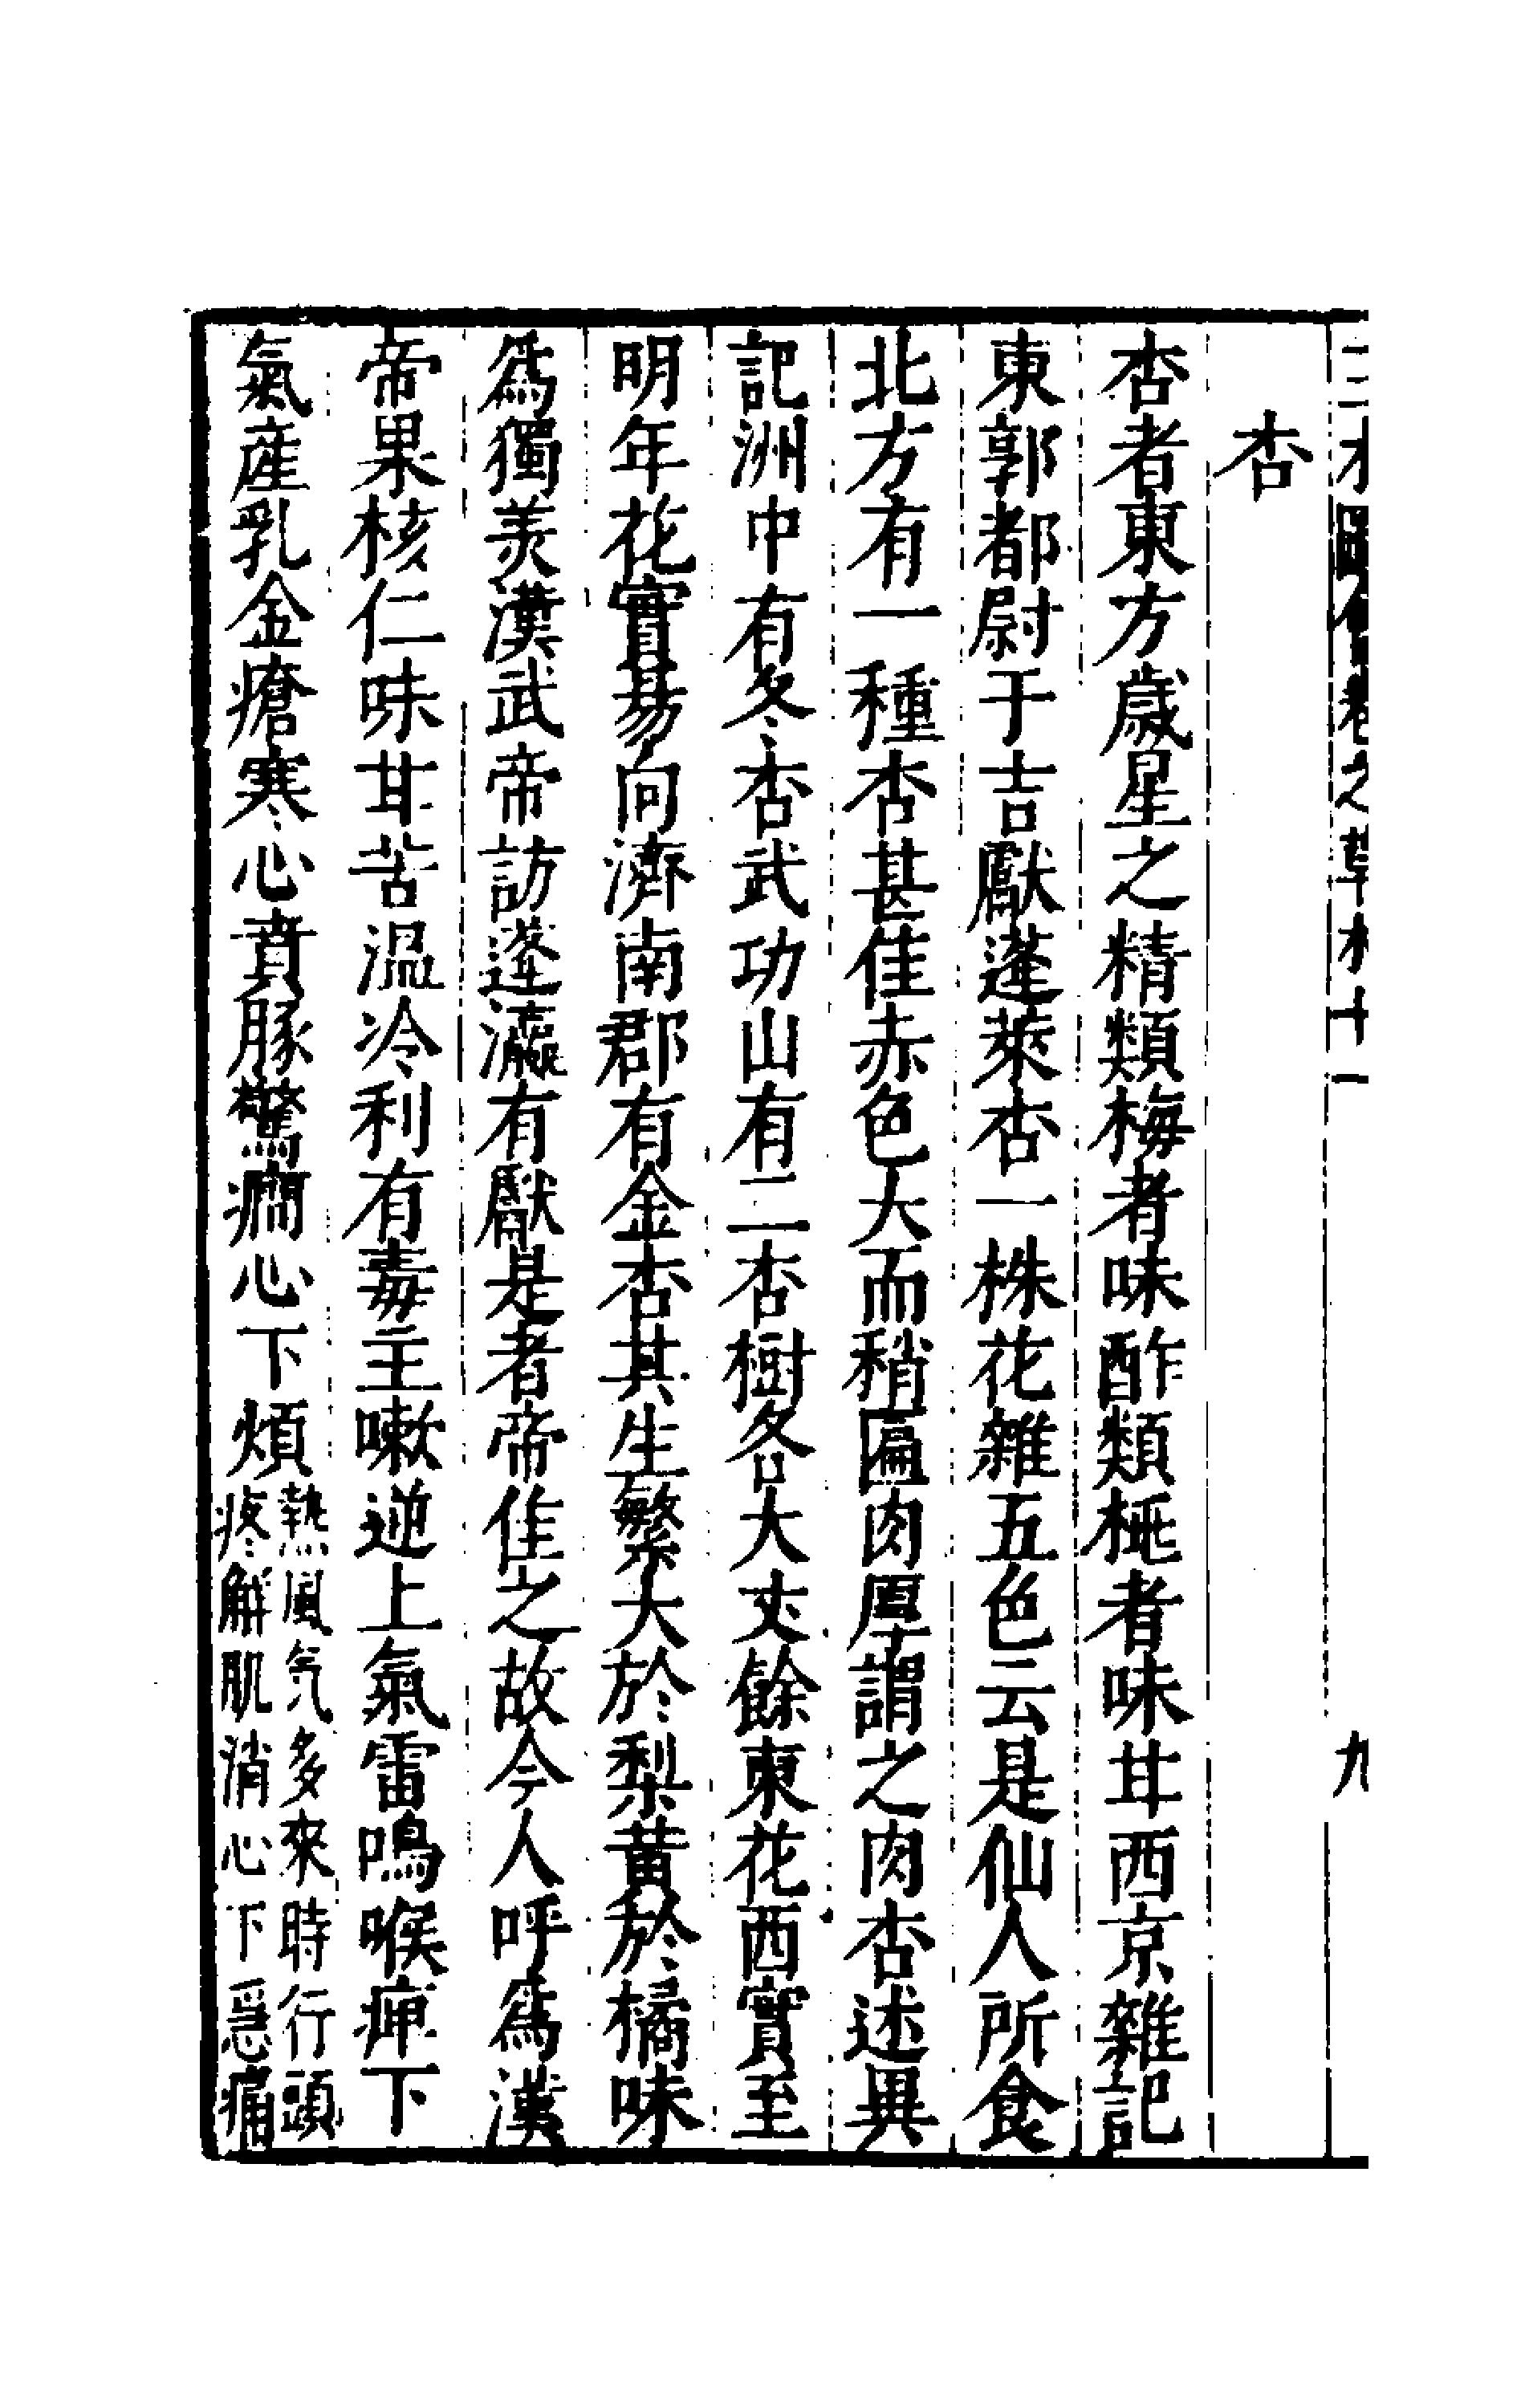 三才圖會卷之草木十一　九
杏
杏者東方歲星之精類梅者味酢類桃者味甘西京雜記
東郭都尉于吉獻蓬萊杏一株花雜五色云是仙人所食
北方有一種杏甚佳赤色大而稍匾肉厚謂之肉杏述異
記洲中有冬杏武功山有二杏樹各大丈餘東花西實至
明年花實易向濟南郡有金杏其生繁大於梨黃於橘味
爲獨美漢武帝訪蓬瀛有獻是者帝佳之故今人呼爲漢
帝果核仁味甘苦溫冷利有毒主嗽逆上氣雷鳴喉痺下
氣產乳金瘡寒心賁豚驚癇心下煩
熱風气多來時行頭
疼解肌消心下急痛